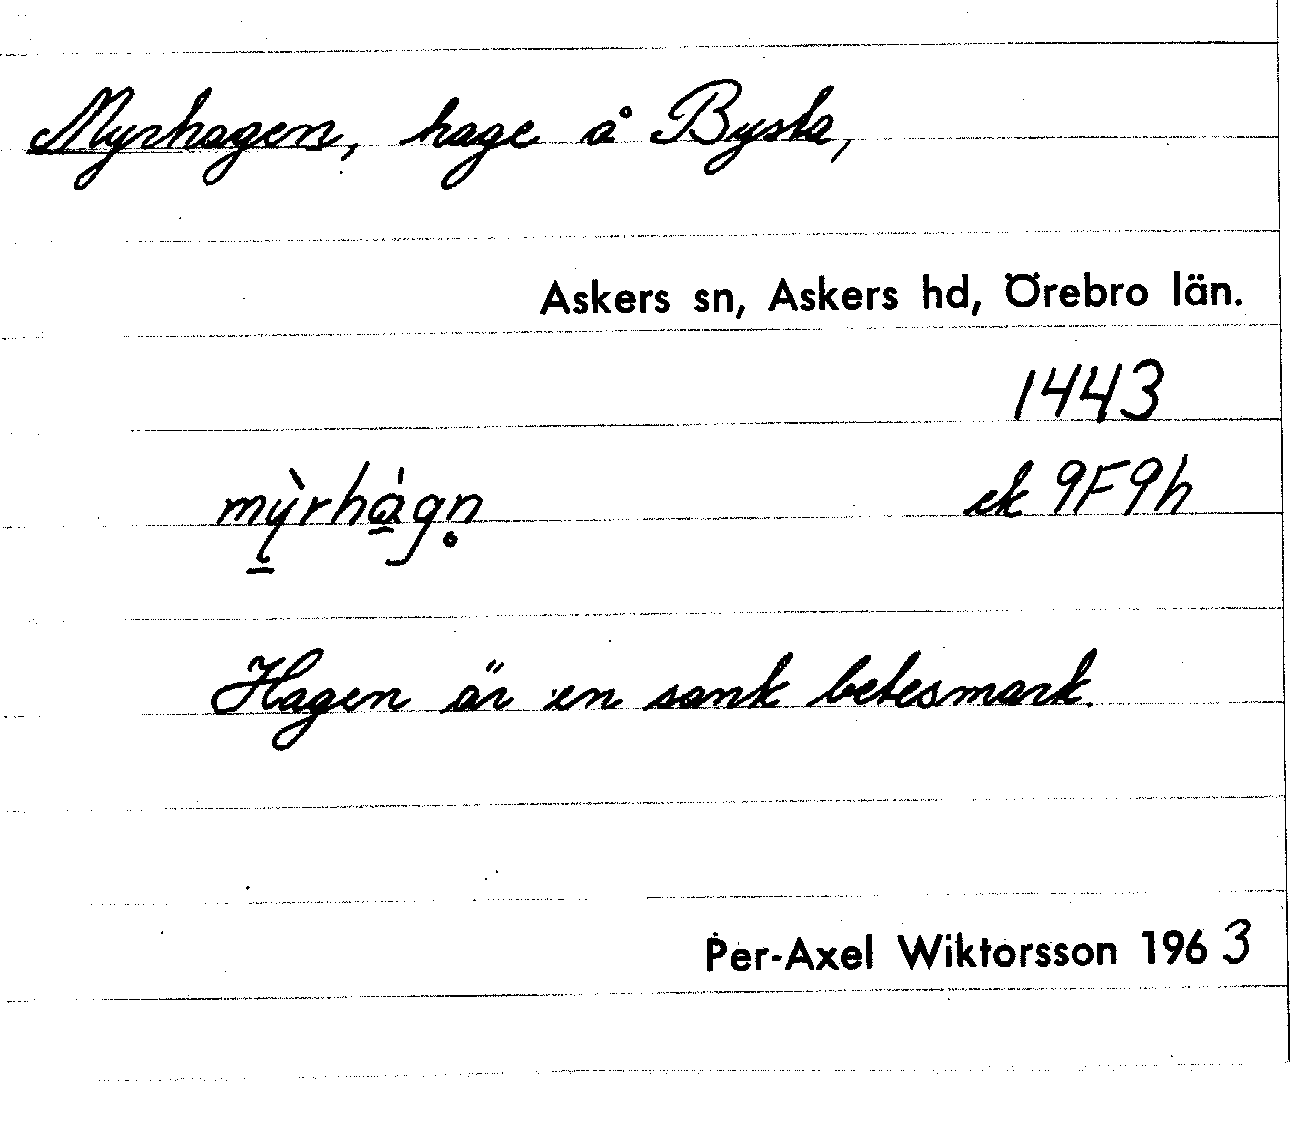 Myrhagen, hage å Bysta,
Askers sn, Askers hd, Örebro län.
1443
mỳ̠rhá̠gn̥ ek 9F9h
Hagen är en sank betesmark.
Per-Axel Wiktorsson 1963